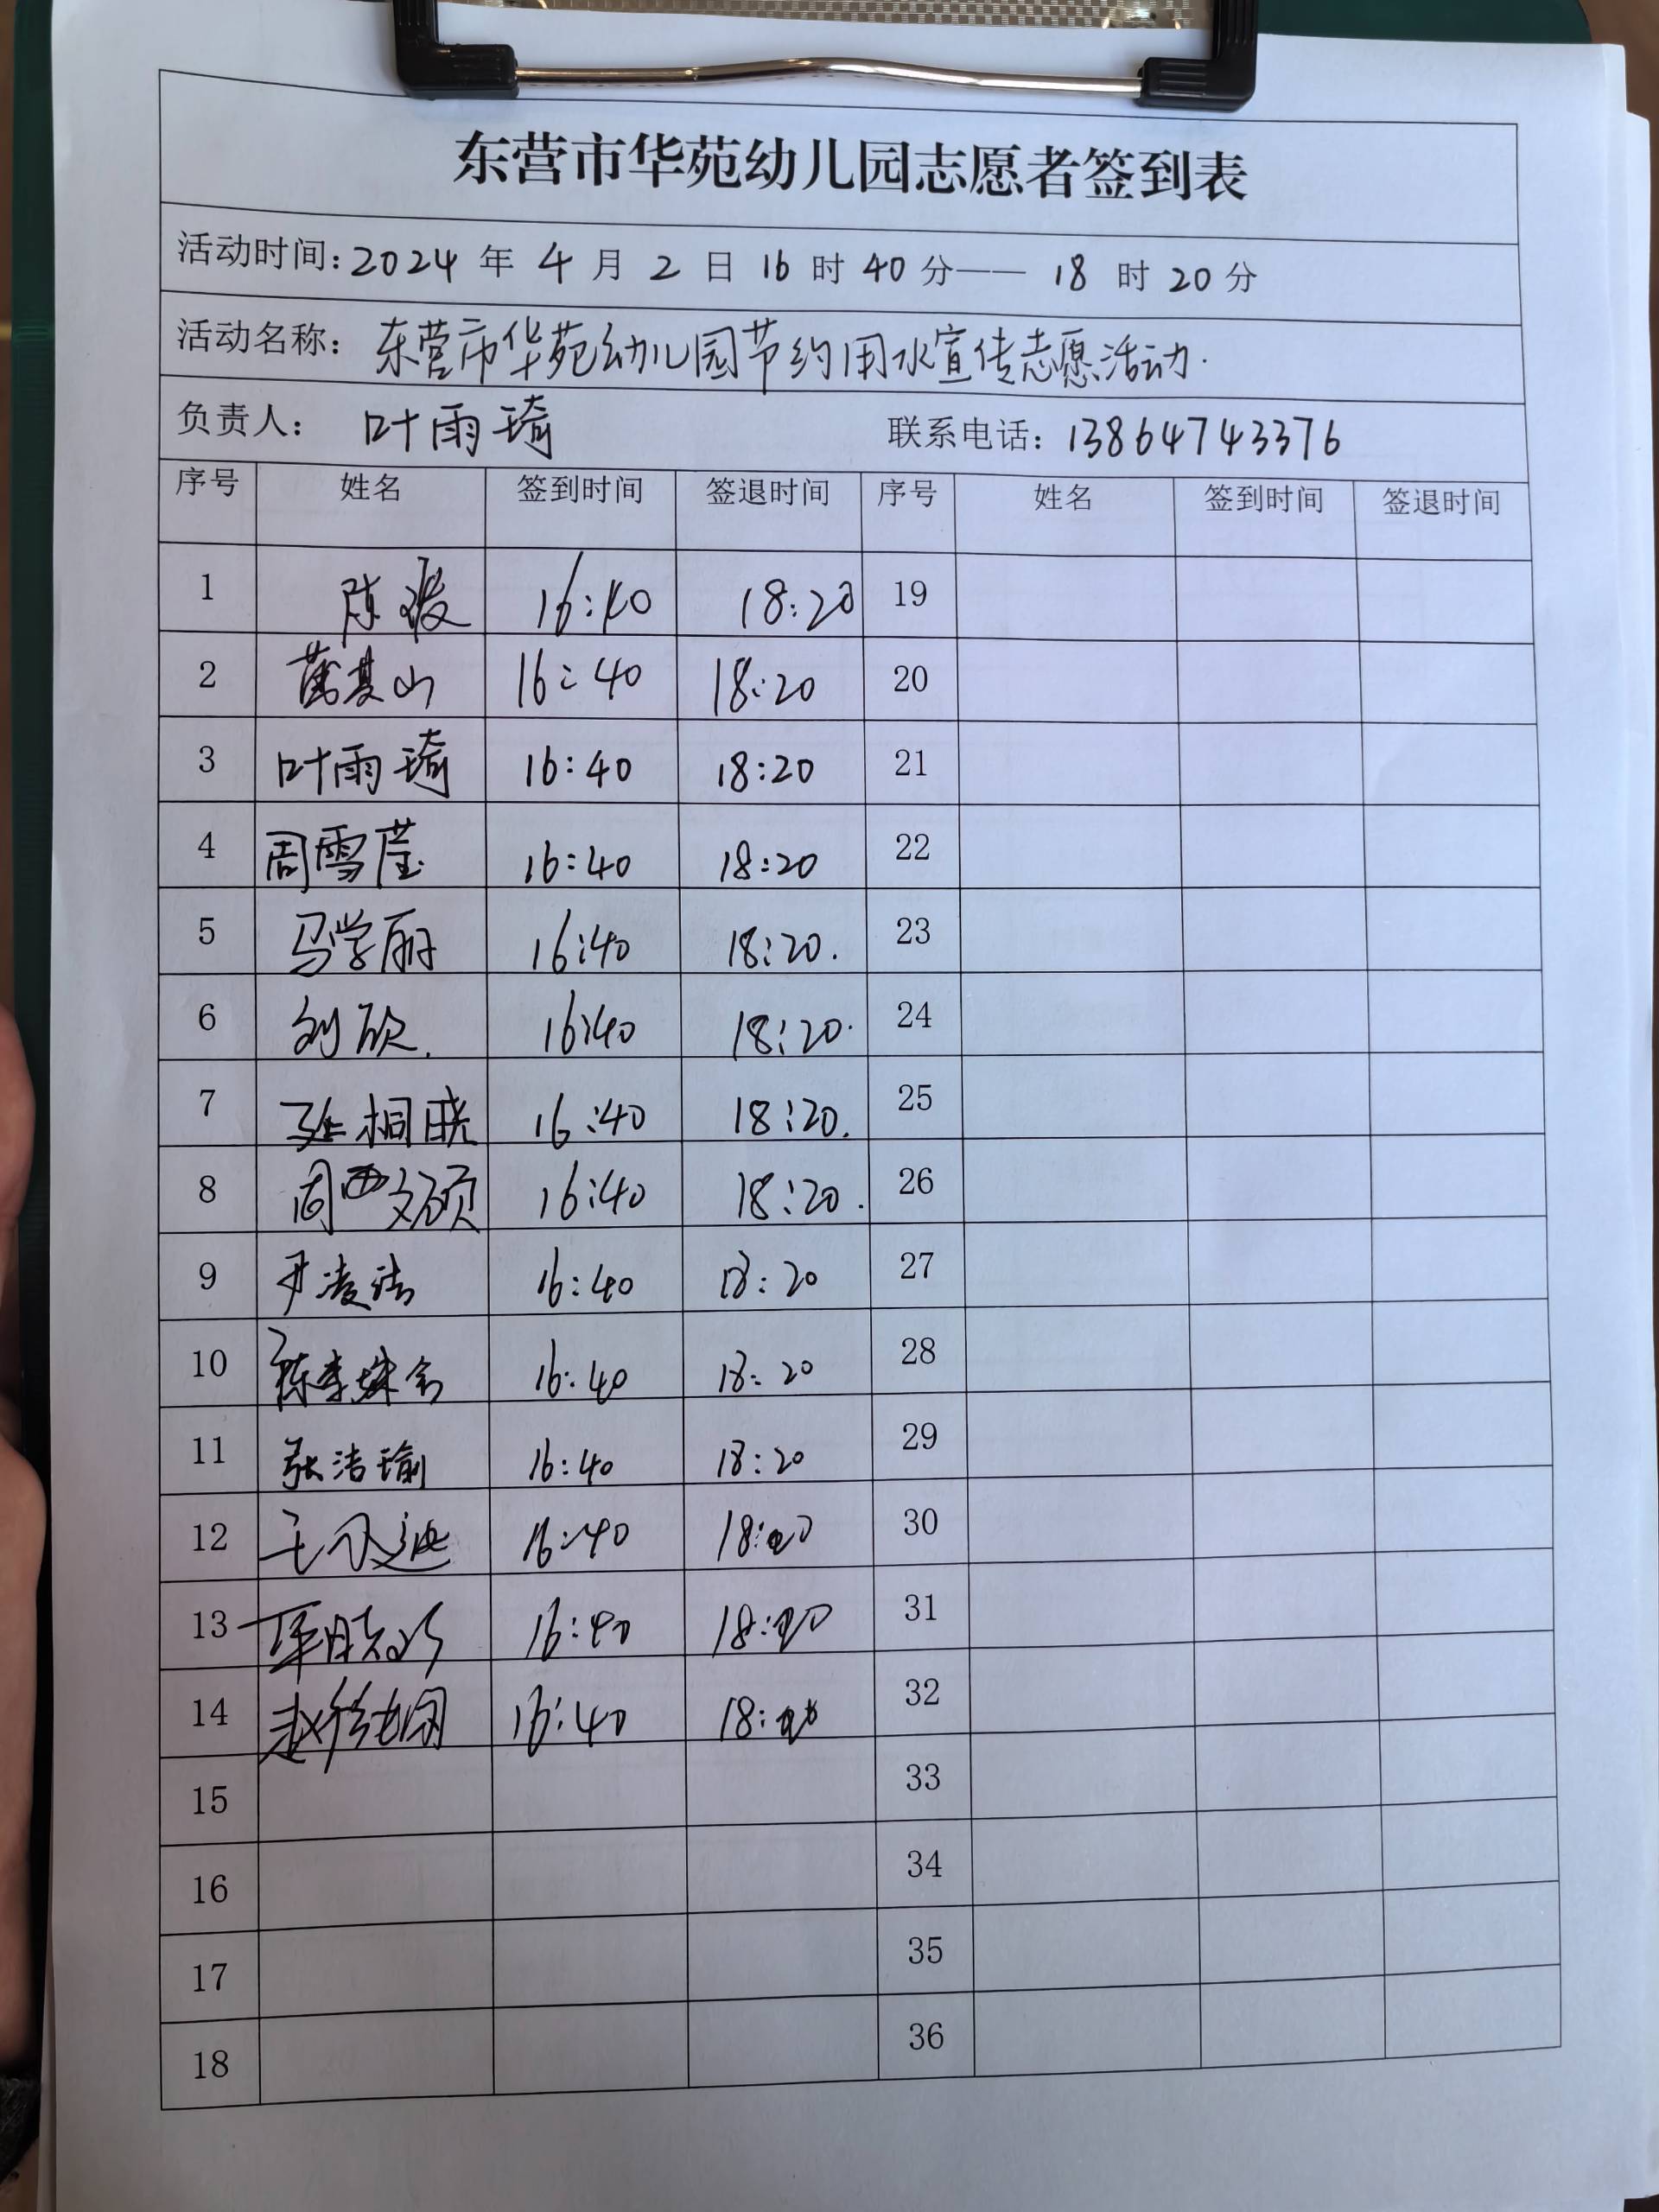 东营市华苑幼儿园志愿者签到表
活动时间：2024 年 4 月 2 日 16 时 40 分—— 18 时 20 分
活动名称： 东营市华苑幼儿园节约用水宣传志愿活动.
负责人： 叶雨琦 联系电话：13864743376
序号 姓名 签到时间 签退时间 序号 姓名 签到时间 签退时间
1 陈 16:40 18:20 19
2 16:40 18:20 20
3 叶雨琦 16:40 18:20 21
4 周雪莹 16:40 18:20 22
5 马学丽 16:40 18:20. 23
6 刘欣. 16:40 18:20. 24
7 张桐 16:40 18:20. 25
8 16:40 18:20. 26
9 尹凌洁 16:40 18:20 27
10 16:40 18:20 28
11 张洁瑜 16:40 18:20 29
12 16:40 18:20 30
13 16:40 18:20 31
14 赵 16:40 18: 32
15 33
16 34
17 35
18 36